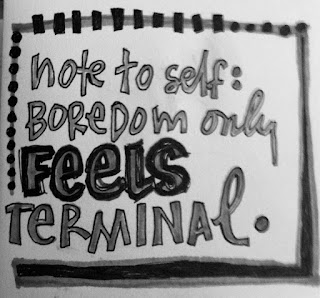 note to self:
BOREDOM only
FEELS
TERMINAL.